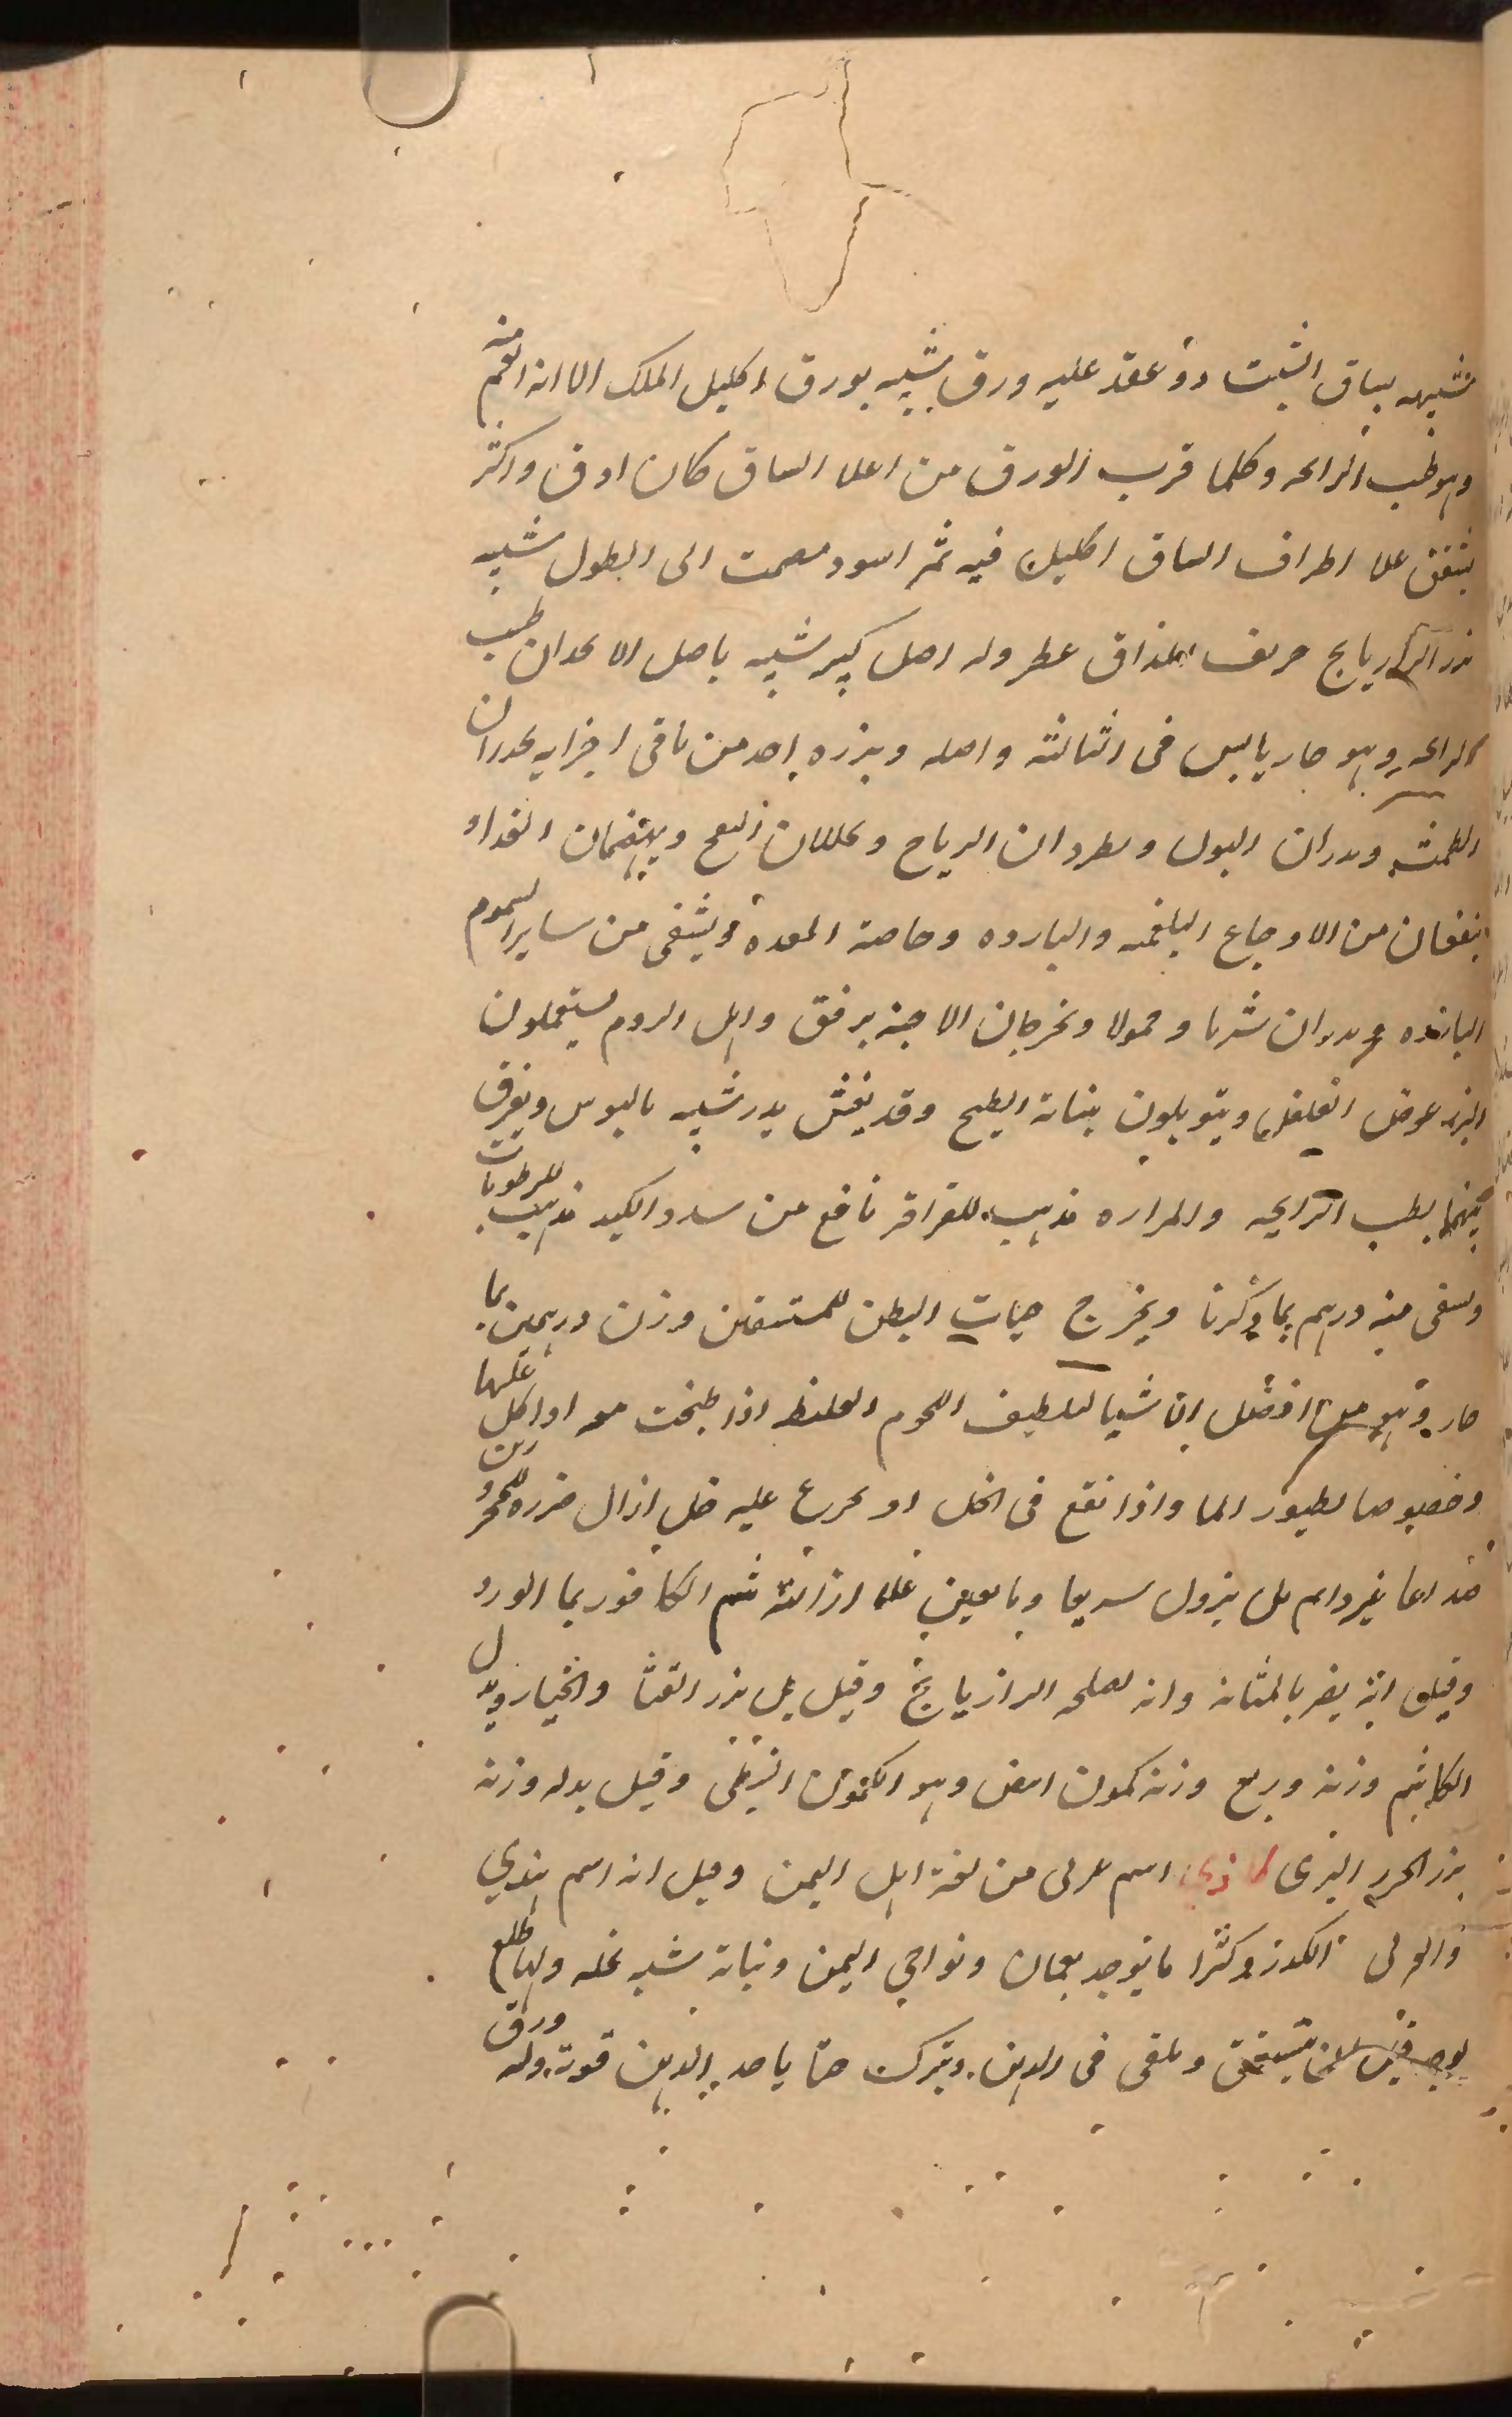 شبيهه بساق الشبت ذو عقد عليه ورق شبيه بورق اكليل الملك الا انه انعم منه
وهو طيب الرايحه وكلما قرب الورق من اعلا الساق كان ادق واكثر
يتفق علا اطراف الساق اكليل فيه ثمر اسود مصمت الى الطول شبيه
بزر الرازيانج حريف المذاق عطر وله اصل كبير شبيه باصل الانجدان طيب
الرايحه وهو حار يابس في الثالثة واصله وبزره احد من باقي اجزايه يحدران
الطمث ويدران البول ويطردان الرياح ويحللان النفخ ويهضمان الغذا و
ينفعان من الاوجاع البلغميه والبارده وخاصة المعدة ويشفي من ساير السموم
البارده ويدران شربا وحمولا ويخرجان الاجنه برفق واهل الروم يستعملون
البزر عوض الفلفل ويتوبلون بنباته الطبيخ وقد يغش ببزر شبيه بالبوس ويفرق
بينهما بطيب الرايحه والمراره مذهب للقراقر نافع من سدد الكبد مذهب للرطوبات
وسقي منه درهم بما ذكرنا ويخرج حيات البطن للمستسقين وزن درهمين بما
حار وهو من افضل الاشيا لتلطيف اللحوم الغليظه اذا طبخت معه او اكل عليها
وخصوصا لطيور الما واذا نقع في الخل او تجرع عليه خل ازال ضرره للمحرورين
غير دايم بل يزول سريعا ويعين علا ازالته شم الكافور بما الورد
وقيل انه يضر بالمثانه وانه يصلحه الرازيانج وقيل بل بزر القثا والخيار وبدل
الكاشم وزنه وربع وزنه كمون ابيض وهو الكمون النبطي وقيل بدله وزنه
بزر الجزر البري كاذي اسم عربي من لغة اهل اليمن وقيل انه اسم هندي
والعربي الكدر وكثرا ما يوجد بعمان ونواحي اليمن ونباته شبيه نخله ولها طلع
يوخذ قبل ان يتشقق ويلقى في الدهن ويترك حتا ياخذ الدهن قوته وله ورق